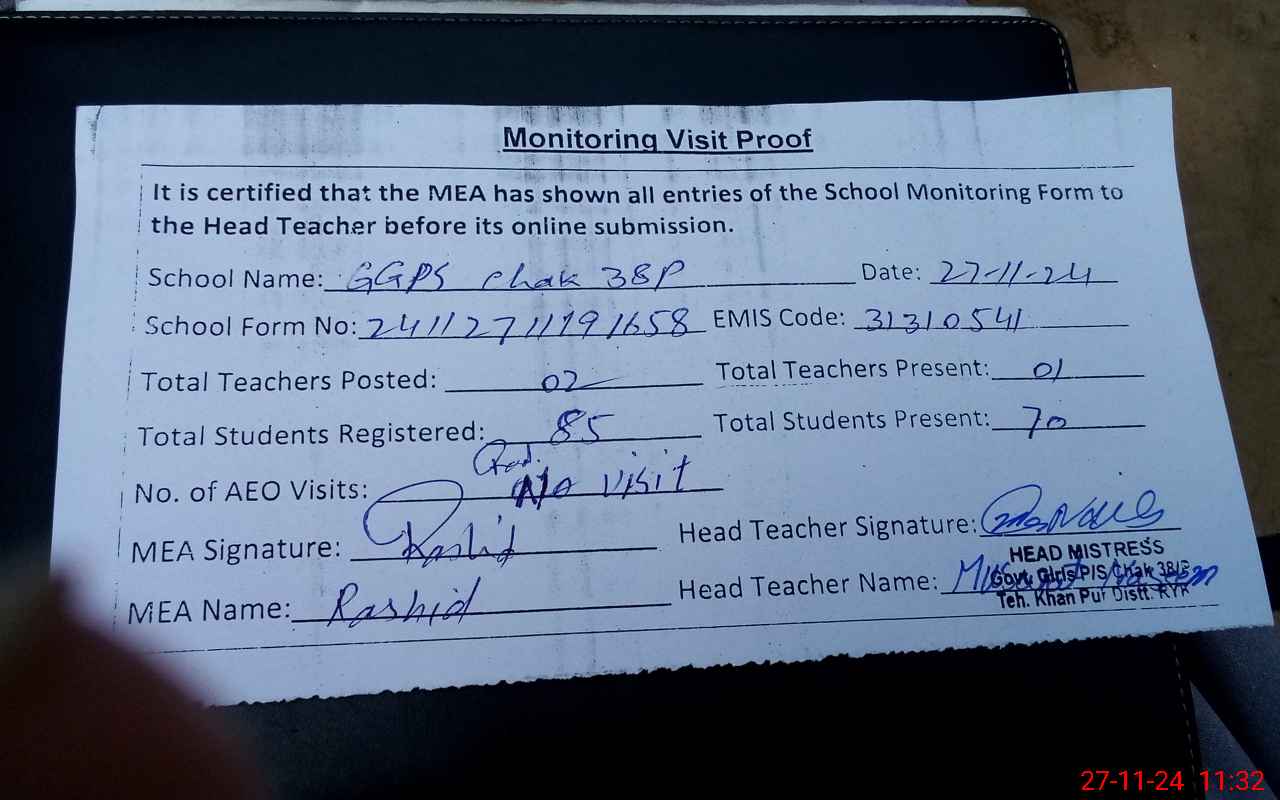 Monitoring Visit Proof
It is certified that the MEA has shown all entries of the School Monitoring Form to
the Head Teacher before its online submission.
School Name: GGPS Chak 38P Date: 27-11-24
School Form No: 24112711191658 EMIS Code: 31310541
Total Teachers Posted: 02 Total Teachers Present: 01
Total Students Registered: 85 Total Students Present: 70
No. of AEO Visits: No visit
MEA Signature: Rashid Head Teacher Signature:
HEAD MISTRESS
MEA Name: Rashid Head Teacher Name:
Govt. Girls P/S Chak 38/P
Teh. Khan Pur Distt. RYK
27-11-24 11:32